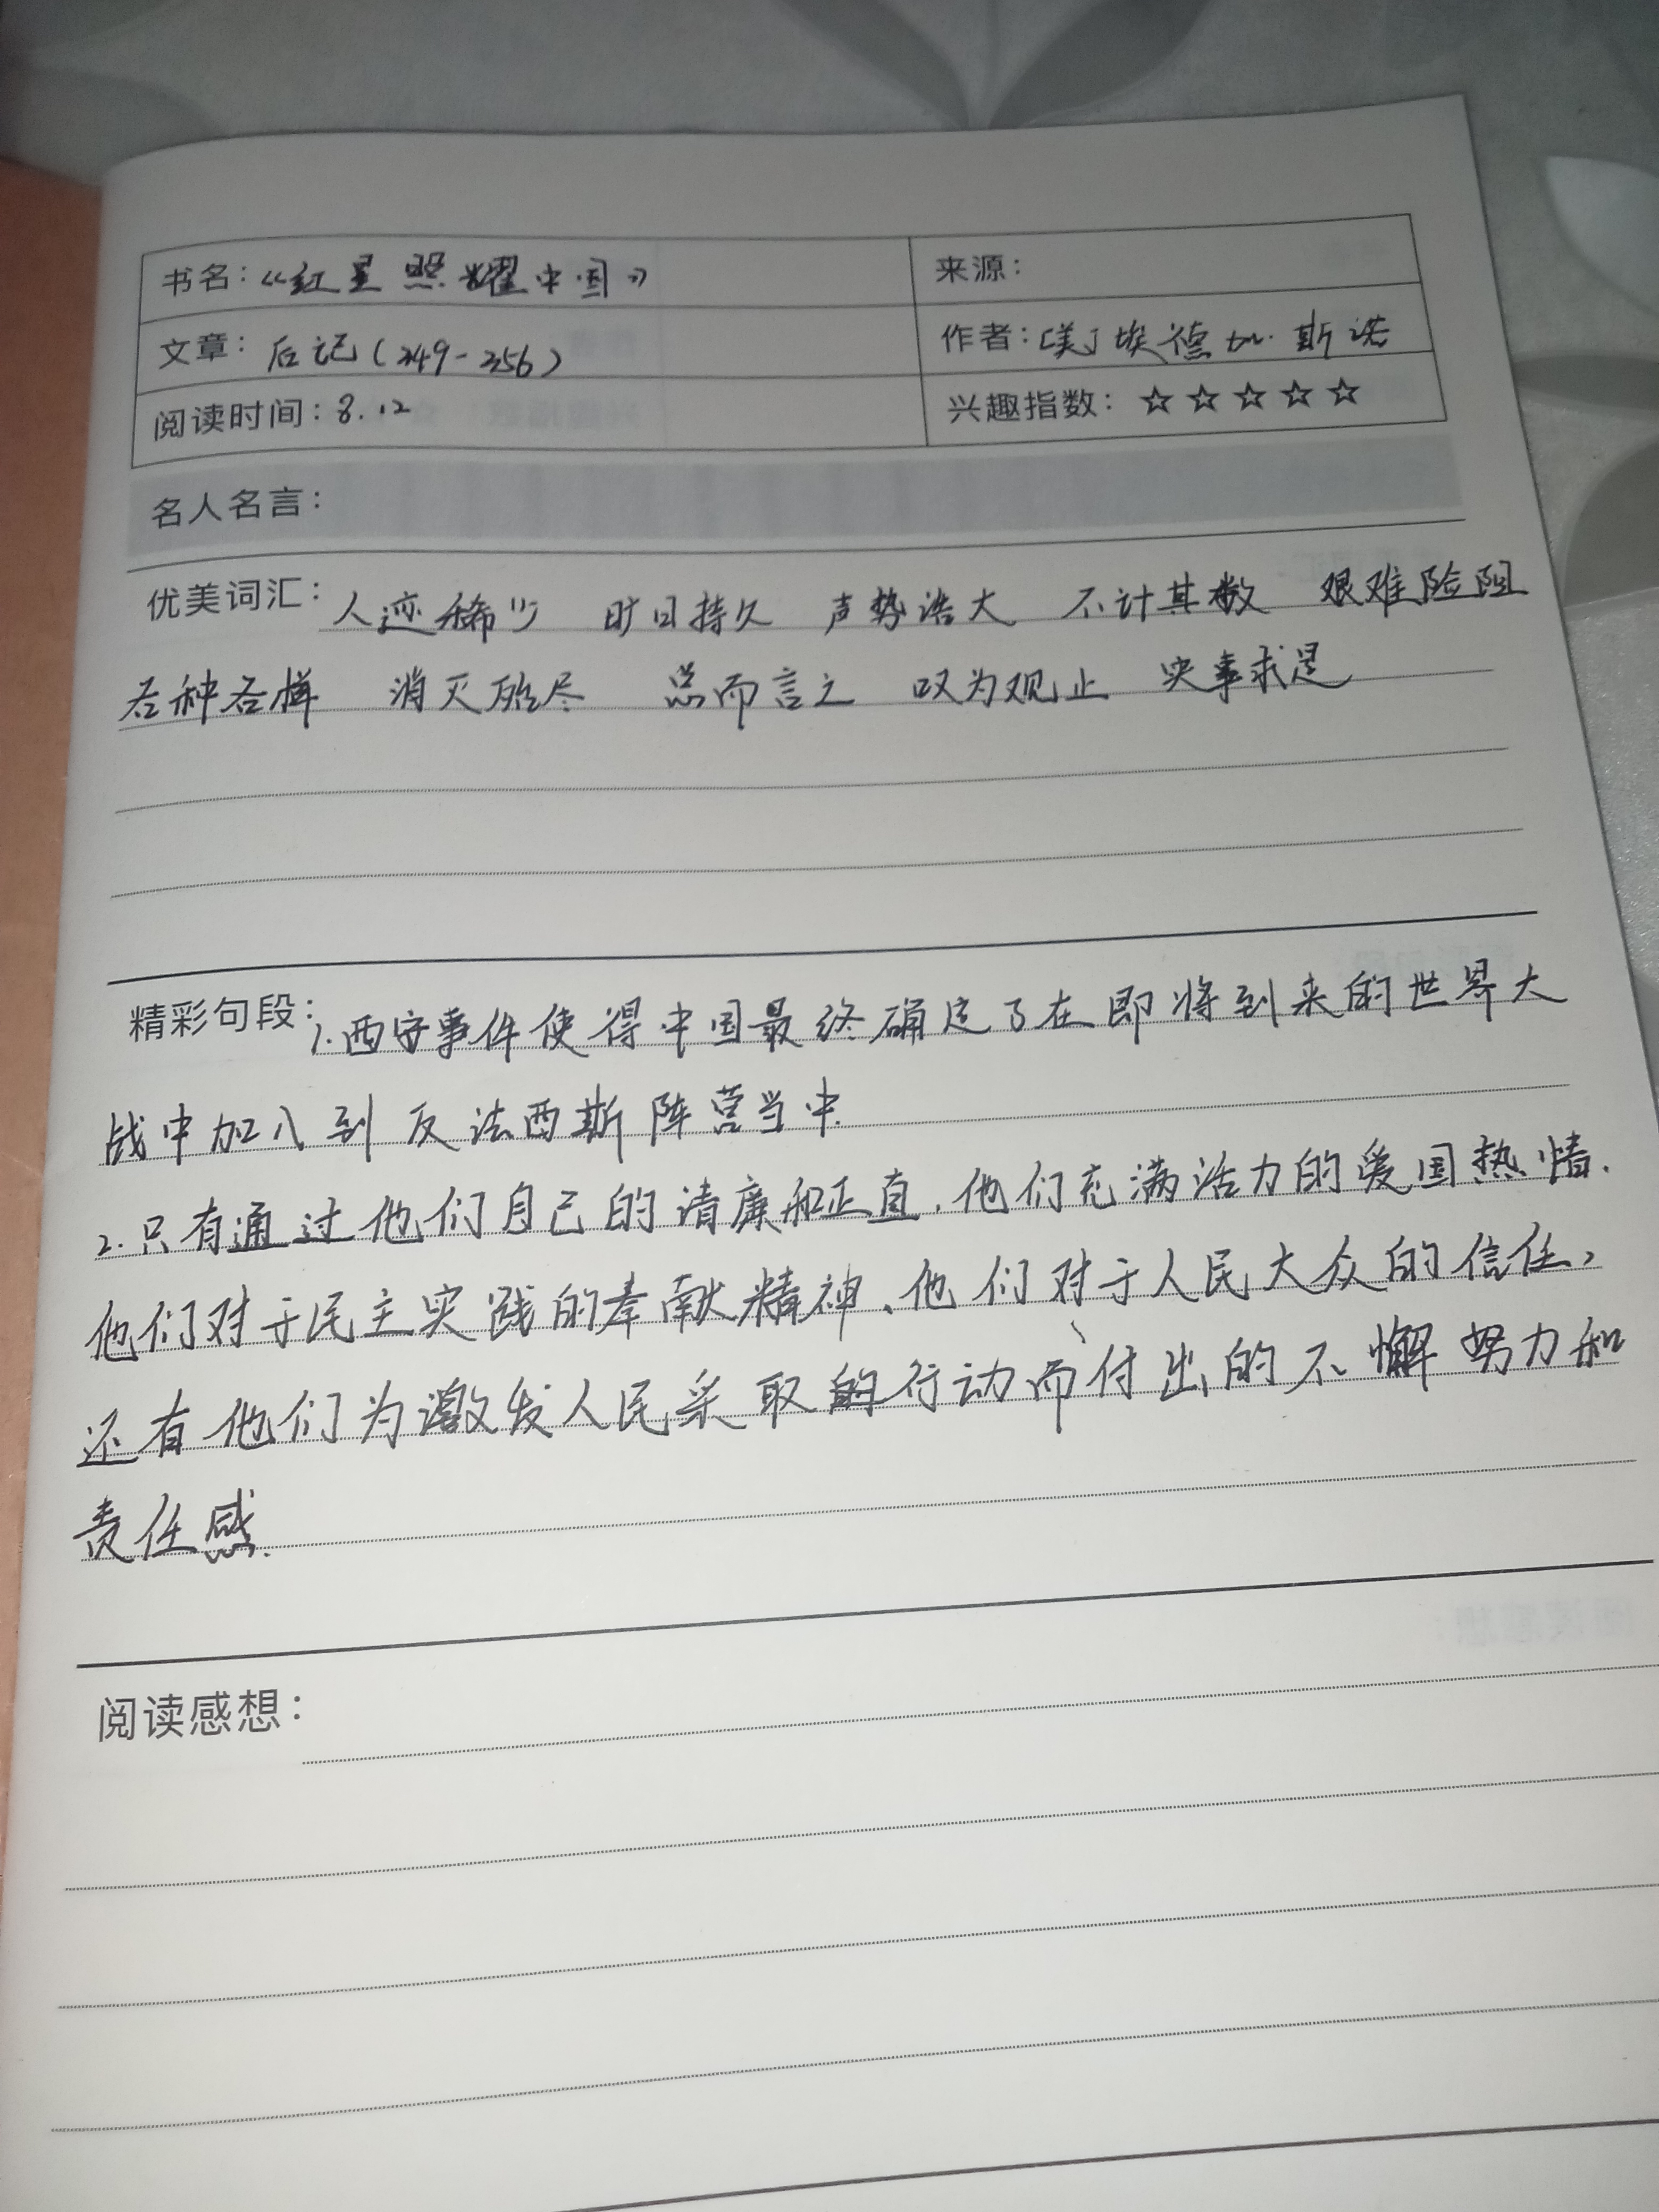 书名：《红星照耀中国》 来源：
文章：后记（249-256） 作者：[美]埃德加·斯诺
阅读时间：8.12 兴趣指数：☆☆☆☆☆
名人名言：
优美词汇：人迹稀少 旷日持久 声势浩大 不计其数 艰难险阻
各种各样 消灭殆尽 总而言之 叹为观止 实事求是
精彩句段：1.西安事件使得中国最终确定了在即将到来的世界大
战中加入到反法西斯阵营当中.
2.只有通过他们自己的清廉和正直、他们充满活力的爱国热情.
他们对于民主实践的奉献精神、他们对于人民大众的信任、
还有他们为激发人民采取的行动而付出的不懈努力和
责任感.
阅读感想：